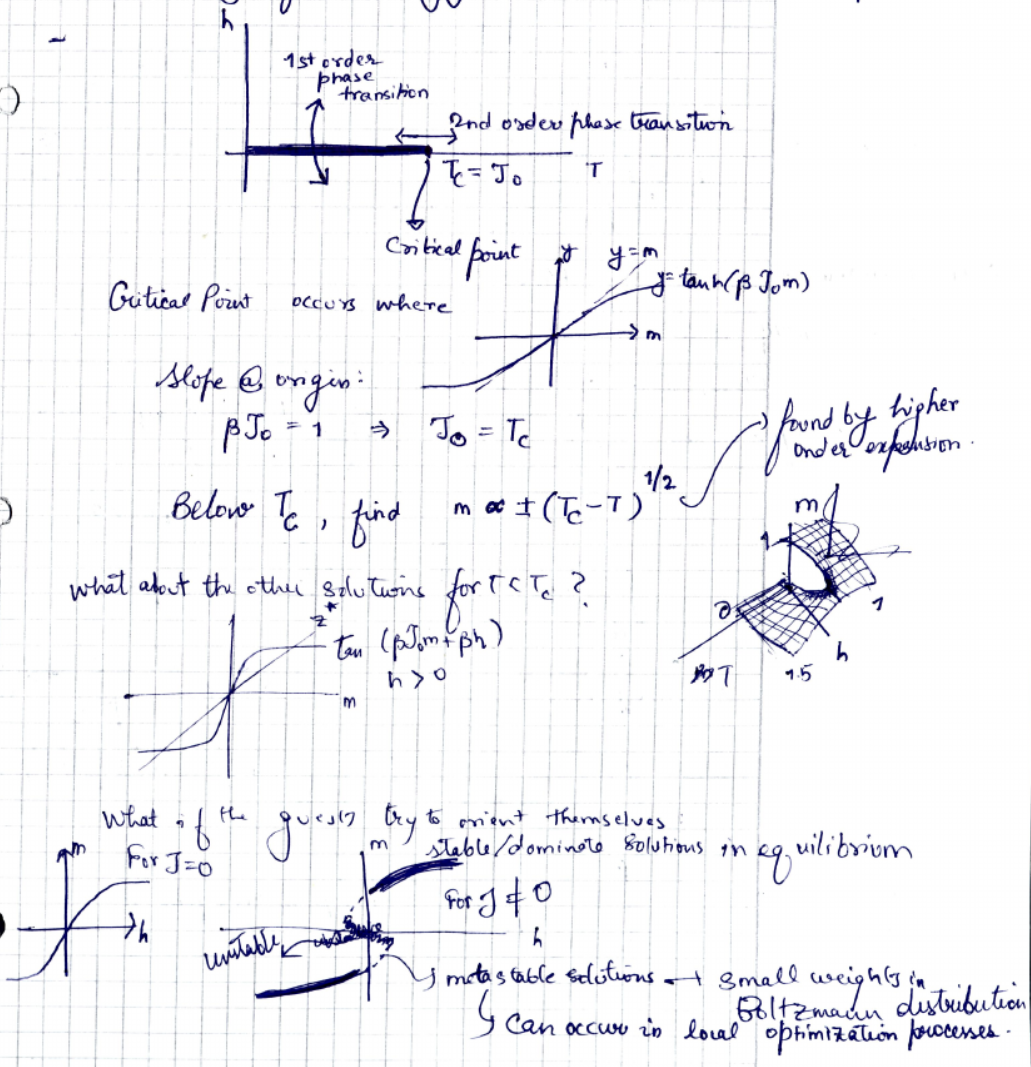 h
1st order
phase
transition
2nd order phase transition
T_c = J_0
T
Critical point
y
y=m
y= tanh(β J_0 m)
m
Critical Point occurs where
Slope @ origin:
βJ_0 = 1 ⇒ J_0 = T_c
found by higher
order expansion.
Below T_c, find m ∝ ± (T_c - T)^{1/2}
m
1
1
0
h
T
1.5
What about the other solutions for T < T_c ?
tan (βJ_0m + βh)
h > 0
m
What if the guests try to orient themselves
m
For J=0
h
m
stable/dominate solutions in equilibrium
For J ≠ 0
h
unstable
metastable solutions → small weights in
Boltzmann distribution
↳ can occur in local optimization processes.